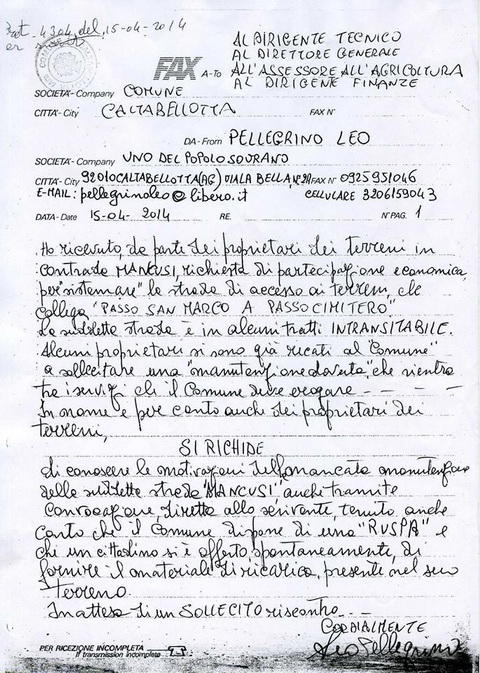 Prot. 4304 del 15-04-2014
AL DIRIGENTE TECNICO
AL DIRETTORE GENERALE
FAX A-To ALL'ASSESSORE ALL'AGRICOLTURA
AL DIRIGENTE FINANZE
SOCIETA'- Company COMUNE
CITTA'- City CALTABELLOTTA FAX N°
DA - From PELLEGRINO LEO
SOCIETA'- Company UNO DEL POPOLO SOVRANO
CITTA'- City 92010 CALTABELLOTTA (AG) VIALA BELLA, N° 21 FAX N° 0925951046
E-MAIL: pellegrinoleo@libero.it CELLULARE 3206159043
DATA - Date 15-04-2014 RE. N° PAG. 1
Ho ricevuto, da parte dei proprietari dei terreni in
contrada MANCUSI, richiesta di partecipazione economica,
per "sistemare" la strada di accesso ai terreni, che
collega "PASSO SAN MARCO A PASSO CIMITERO"
La suddetta strada è in alcuni tratti INTRANSITABILE.
Alcuni proprietari si sono già recati al "Comune"
a sollecitare una "manutenzione dovuta", che rientra
tra i servizi che il Comune deve erogare - -
In nome e per conto anche dei proprietari dei
terreni,
SI RICHIDE
di conoscere le motivazioni della mancata manutenzione
della suddetta strada "MANCUSI", anche tramite
convocazione diretta allo scrivente, tenuto anche
conto che il Comune dispone di una "RUSPA" e
che un cittadino si è offerto spontaneamente, di
fornire il materiale di ricarica, presente nel suo
terreno.
In attesa di un SOLLECITO riscontro - -
CORDIALMENTE
Leo Pellegrino
PER RICEZIONE INCOMPLETA
If transmission incomplete